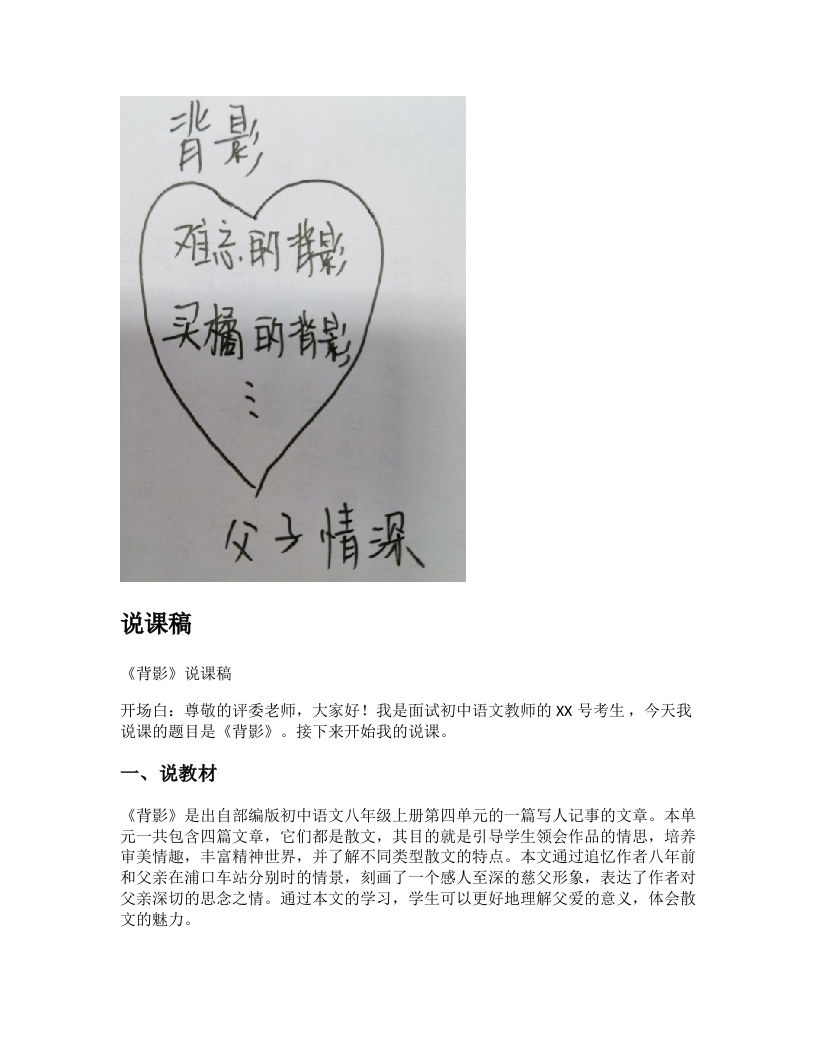 背影
难忘的背影
买橘的背影
⋮
父子情深
说课稿
《背影》说课稿
开场白：尊敬的评委老师，大家好！我是面试初中语文教师的 XX 号考生，今天我
说课的题目是《背影》。接下来开始我的说课。
一、说教材
《背影》是出自部编版初中语文八年级上册第四单元的一篇写人记事的文章。本单
元一共包含四篇文章，它们都是散文，其目的就是引导学生领会作品的情思，培养
审美情趣，丰富精神世界，并了解不同类型散文的特点。本文通过追忆作者八年前
和父亲在浦口车站分别时的情景，刻画了一个感人至深的慈父形象，表达了作者对
父亲深切的思念之情。通过本文的学习，学生可以更好地理解父爱的意义，体会散
文的魅力。